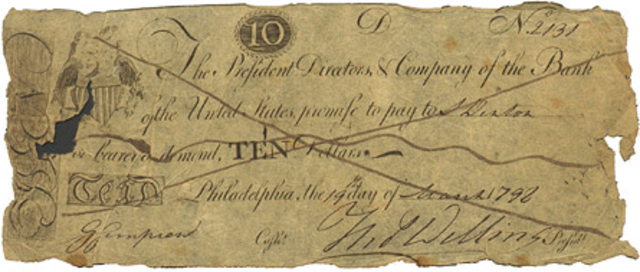 10 D No. 2131
The President Directors, & Company of the Bank
of the United States, promise to pay to S Denton
or bearer on demand, TEN Dollars
Ten Philadelphia, the 19th day of March 1798
G Simpson Cashr. Thos Willing Presidt.